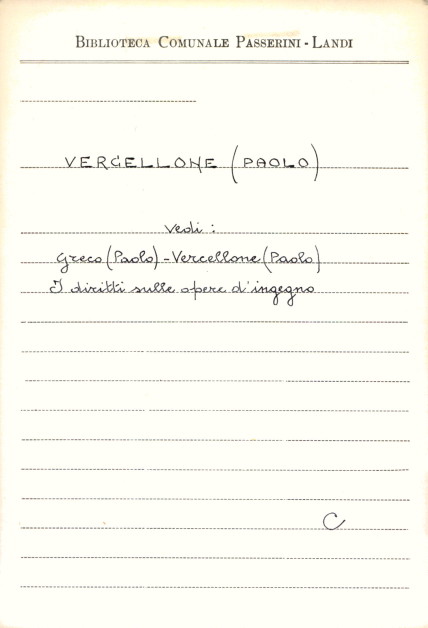 BIBLIOTECA COMUNALE PASSERINI - LANDI
VERCELLONE (PAOLO)
vedi :
Greco (Paolo) - Vercellone (Paolo)
I diritti sulle opere d'ingegno
C